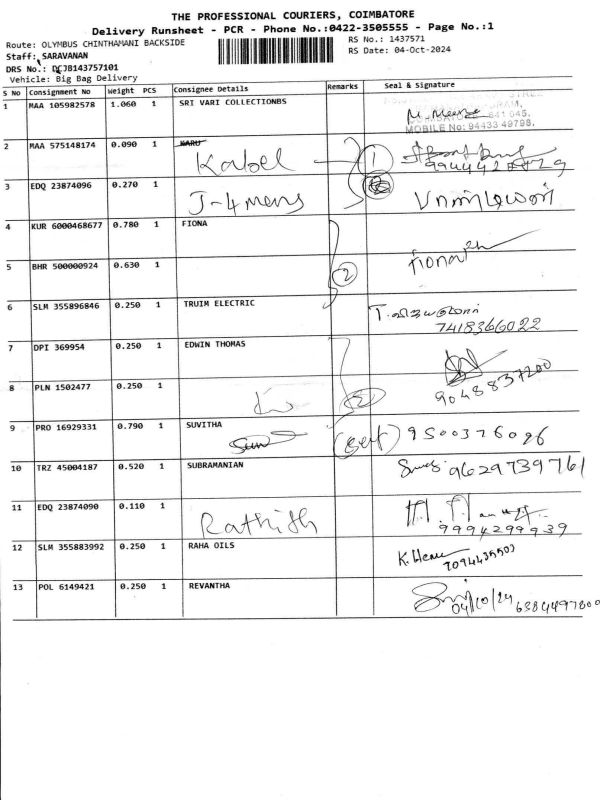 THE PROFESSIONAL COURIERS, COIMBATORE
Delivery Runsheet - PCR - Phone No.:0422-3505555 - Page No.:1
Route: OLYMBUS CHINTHAMANI BACKSIDE RS No.: 1437571
Staff: SARAVANAN RS Date: 04-Oct-2024
DRS No.: DCJB143757101
Vehicle: Big Bag Delivery
S No Consignment No Weight PCS Consignee Details Remarks Seal & Signature
1 MAA 105982578 1.060 1 SRI VARI COLLECTIONBS
641 045,
MOBILE No: 94433 49798,
2 MAA 575148174 0.090 1 KARU
Kabel 1
3 EDQ 23874096 0.270 1 J-4 mens
4 KUR 6000468677 0.780 1 FIONA fiona
5 BHR 500000924 0.630 1 2
6 SLM 355896846 0.250 1 TRUIM ELECTRIC
7418366022
7 DPI 369954 0.250 1 EDWIN THOMAS
8 PLN 1502477 0.250 1 2 9048837200
9 PRO 16929331 0.790 1 SUVITHA 9500376096
10 TRZ 45004187 0.520 1 SUBRAMANIAN 9629739761
11 EDQ 23874090 0.110 1 Rathish
9994299939
12 SLM 355883992 0.250 1 RAHA OILS 7094435503
13 POL 6149421 0.250 1 REVANTHA
04/10/24 6384497800